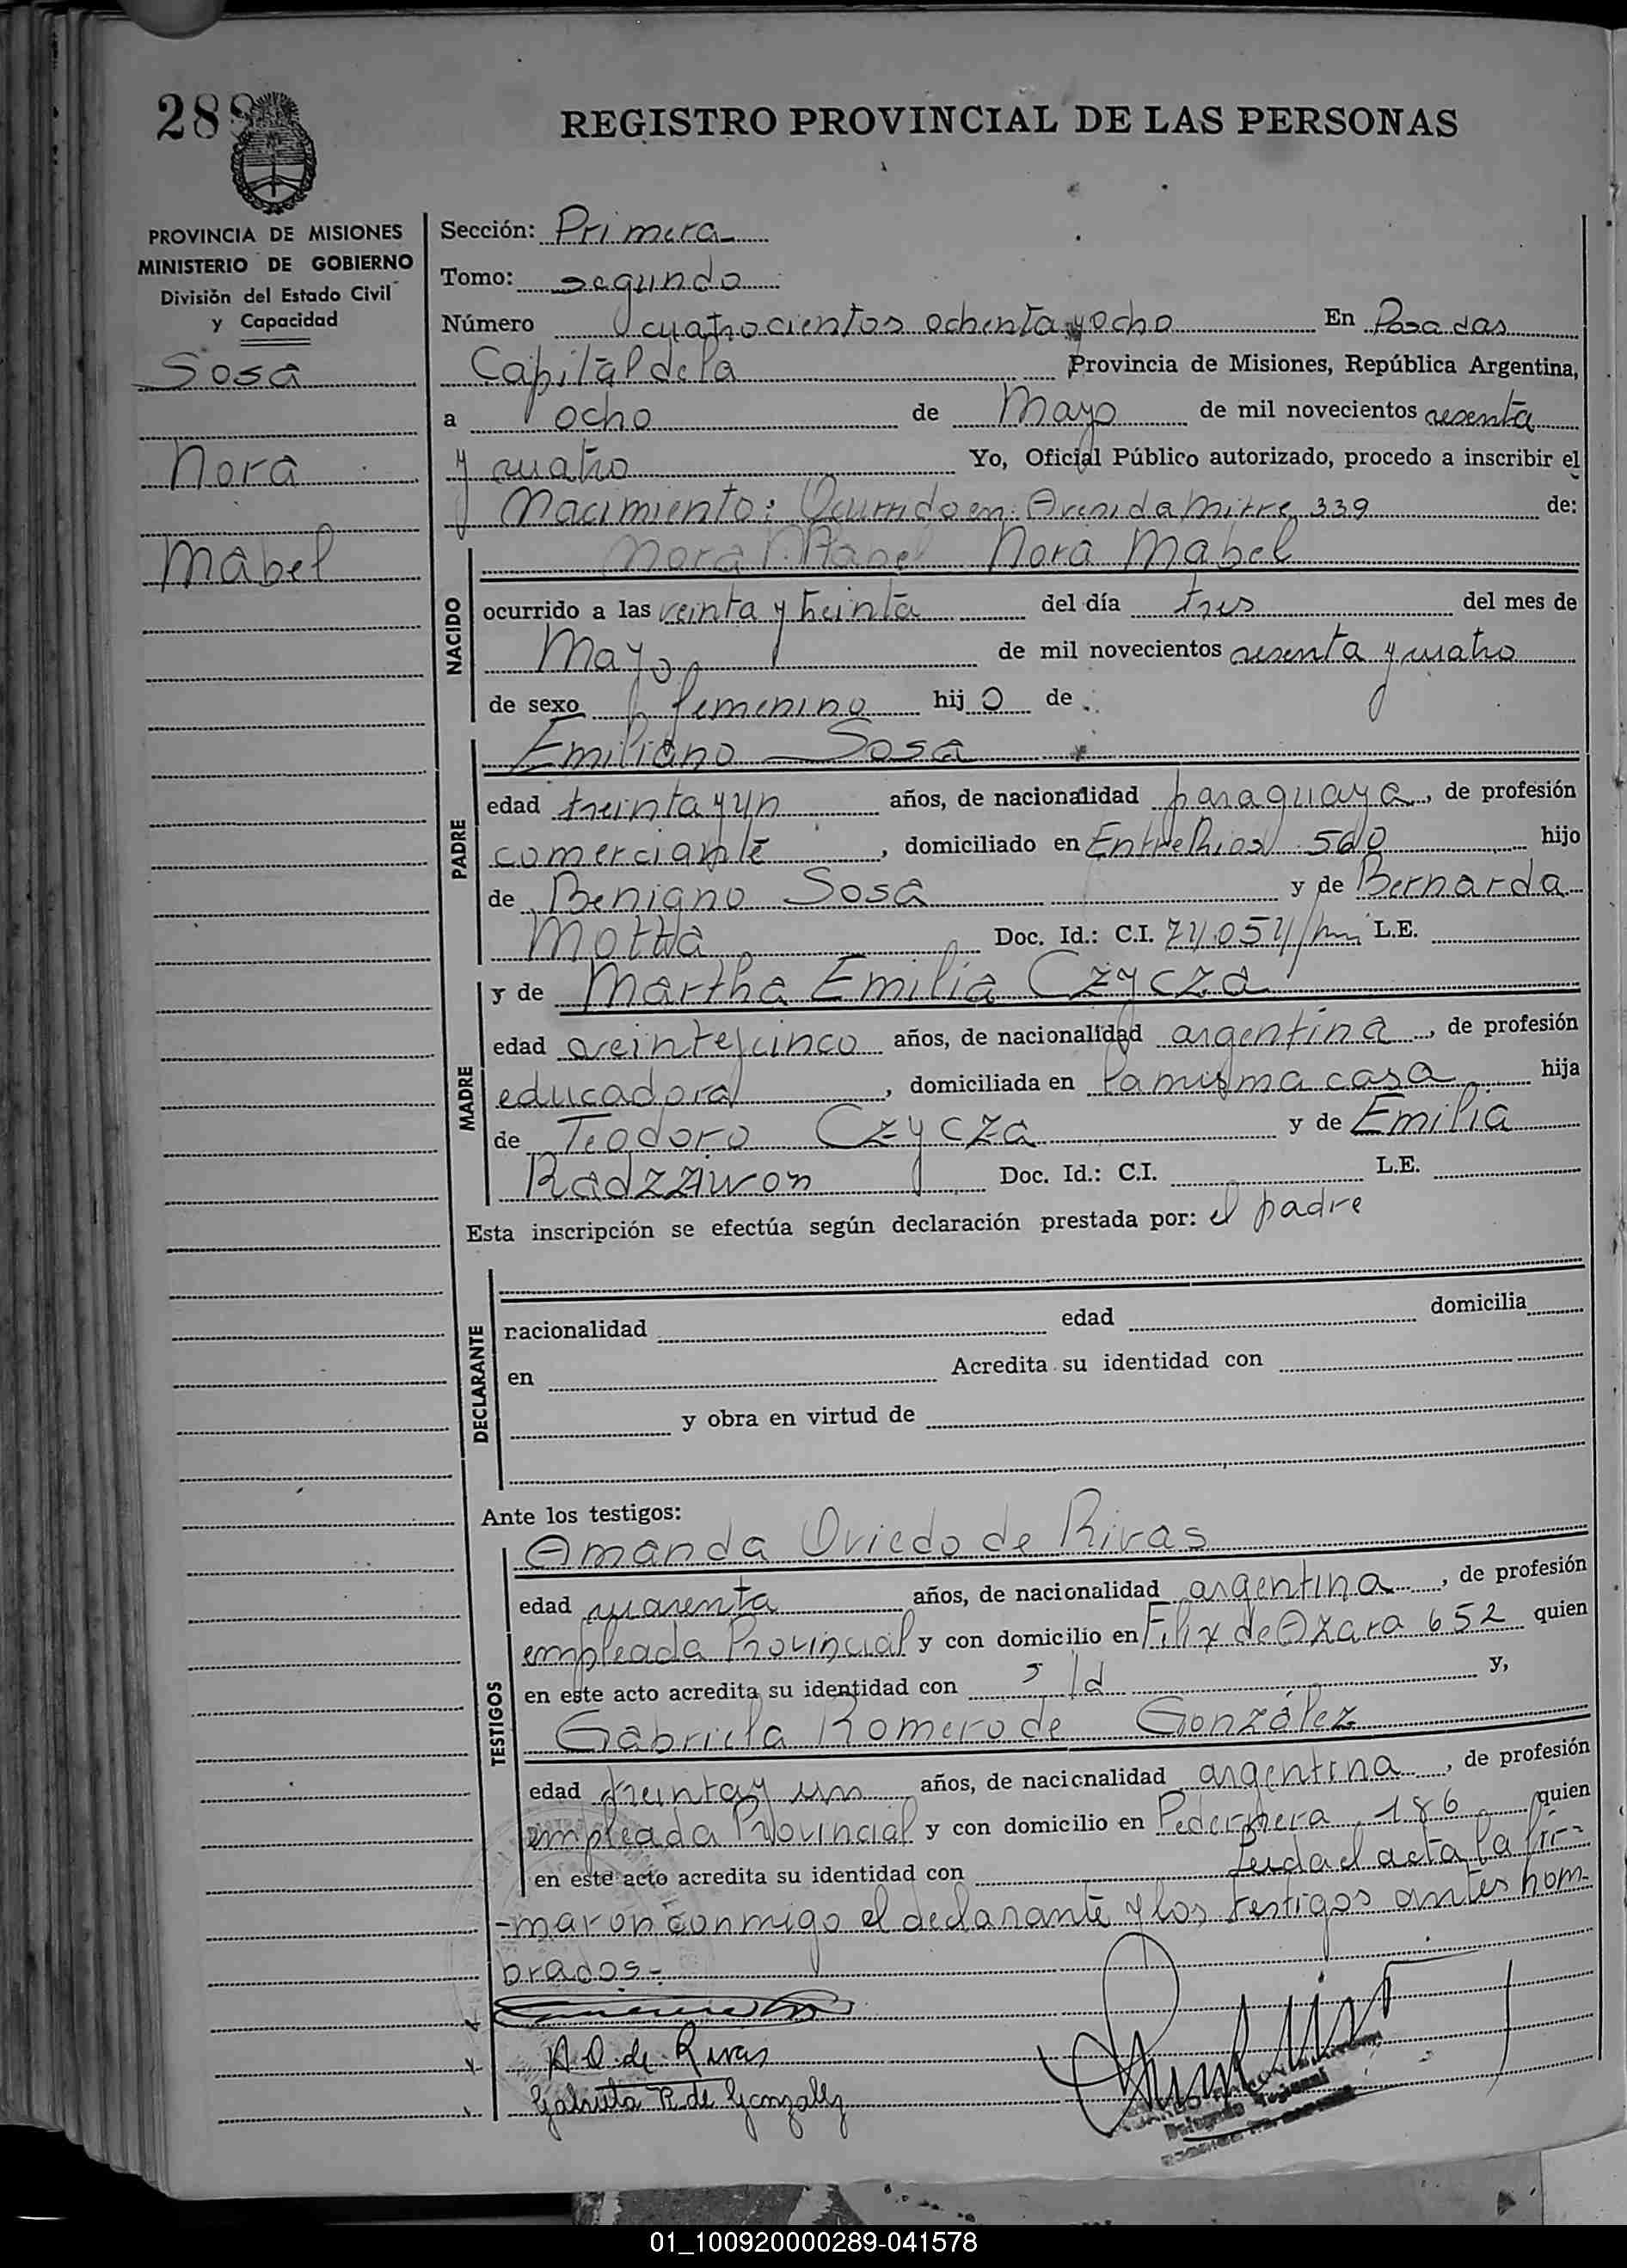 288
REGISTRO PROVINCIAL DE LAS PERSONAS
PROVINCIA DE MISIONES
MINISTERIO DE GOBIERNO
División del Estado Civil
y Capacidad
Sosa
Nora
Mabel
Sección: Primera
Tomo: segundo
Número cuatrocientos ochenta y ocho En Posadas
Capital de la Provincia de Misiones, República Argentina,
a ocho de Mayo de mil novecientos sesenta
y cuatro Yo, Oficial Público autorizado, procedo a inscribir el
Nacimiento: Ocurrido en: Avenida Mitre 339 de:
Nora Mabel Nora Mabel
NACIDO
ocurrido a las veinta y treinta del día tres del mes de
Mayo de mil novecientos sesenta y cuatro
de sexo femenino hij o de
Emiliano Sosa
PADRE
edad treinta y un años, de nacionalidad paraguaya, de profesión
comerciante, domiciliado en Entre Rios 560 hijo
de Benigno Sosa y de Bernarda
Motta Doc. Id.: C.I. L.E.
y de Martha Emilia Czycza
MADRE
edad veinte cinco años, de nacionalidad argentina, de profesión
educadora, domiciliada en la misma casa hija
de Teodoro Czycza y de Emilia
Radzziwon Doc. Id.: C.I. L.E.
Esta inscripción se efectúa según declaración prestada por: el padre
DECLARANTE
nacionalidad edad domicilia
en Acredita su identidad con
y obra en virtud de
Ante los testigos:
Amanda Oviedo de Rivas
TESTIGOS
edad cuarenta años, de nacionalidad argentina, de profesión
empleada Provincial y con domicilio en Felix de Azara 652 quien
en este acto acredita su identidad con y,
Gabriela Romero de González
edad treinta y un años, de nacionalidad argentina, de profesión
empleada Provincial y con domicilio en Pedernera 186 quien
en este acto acredita su identidad con Leida el acta la fir=
-maron conmigo el declarante y los testigos antes nom-
brados.-
A O. de Rivas
Gabriela R. de González
Delegado Regional
01_100920000289-041578